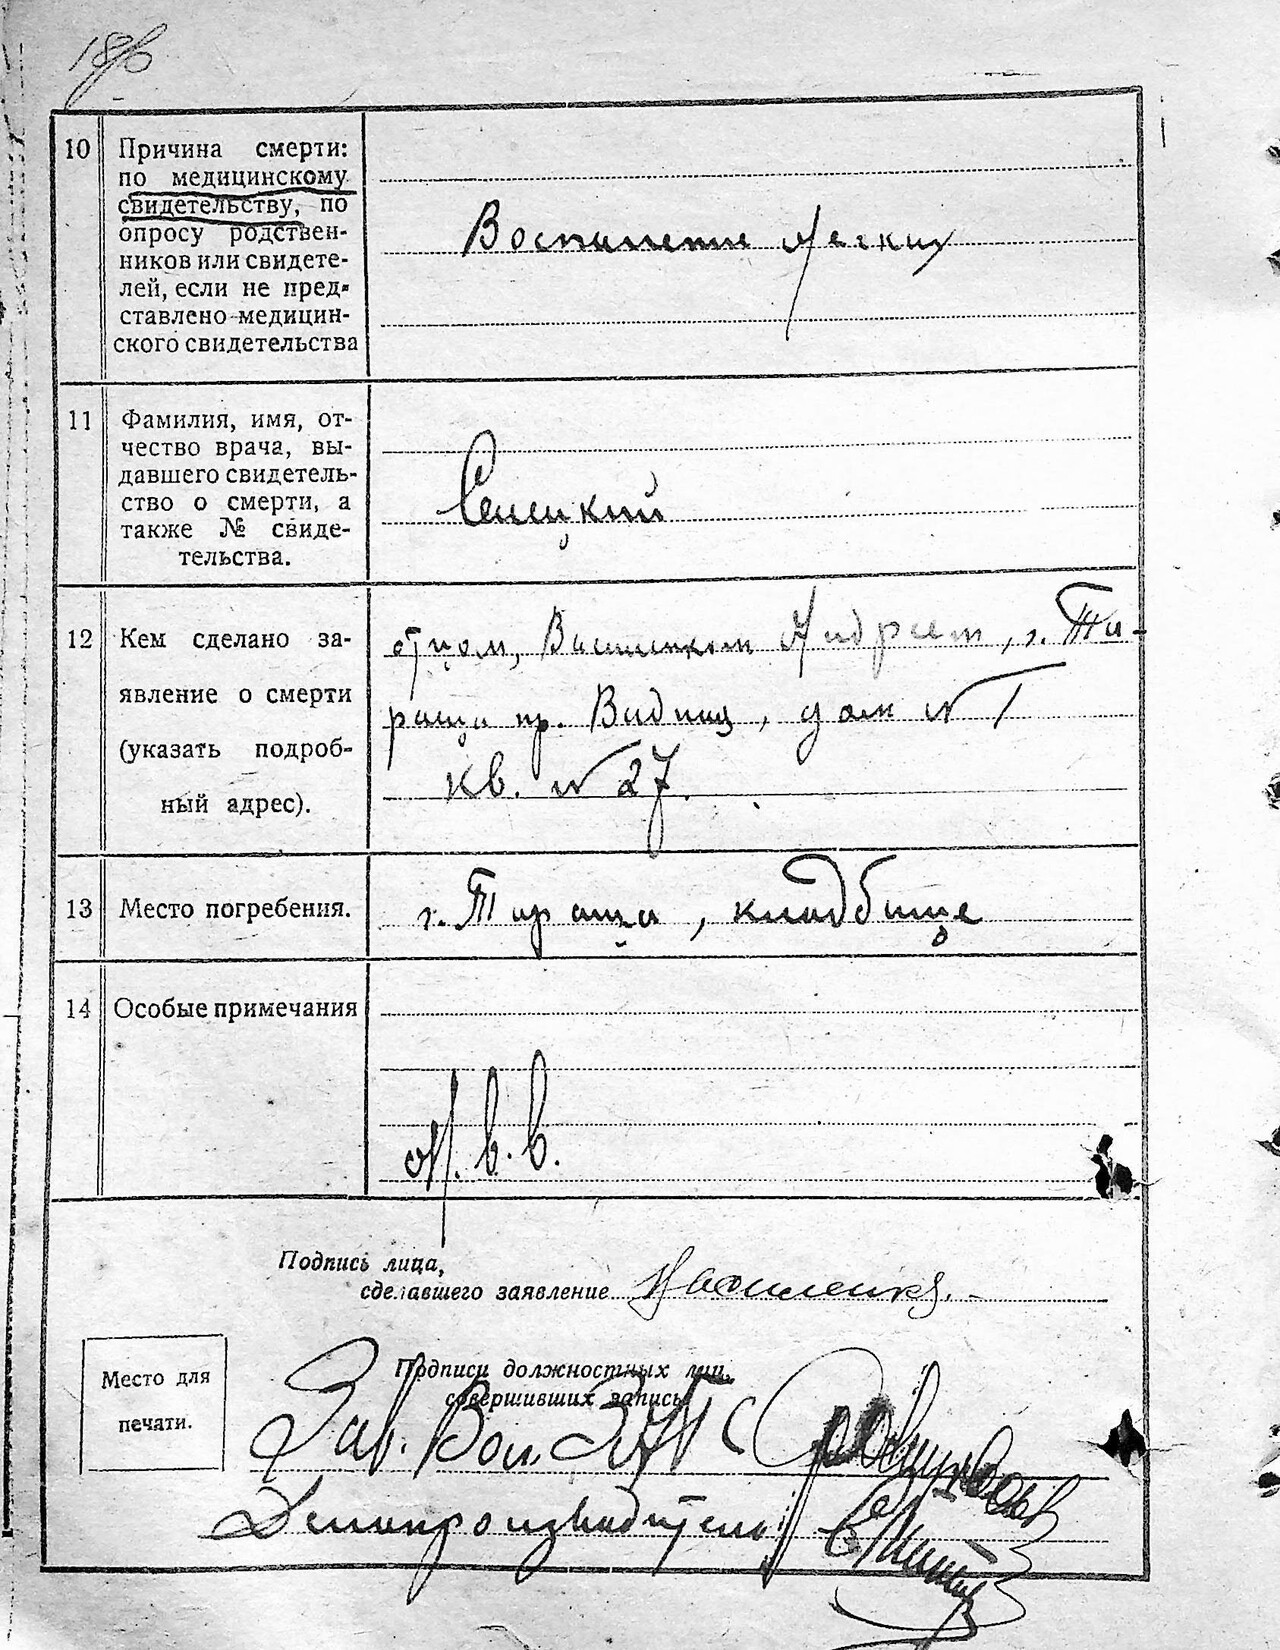 10 Причина смерти:
по медицинскому
свидетельству, по
опросу родствен-
ников или свидете-
лей, если не пред-
ставлено медицин-
ского свидетельства
Воспаление легких
11 Фамилия, имя, от-
чество врача, вы-
давшего свидетель-
ство о смерти, а
также № свиде-
тельства.
12 Кем сделано за-
явление о смерти
(указать подроб-
ный адрес).
отцом, Василенком Андреем, г. Та-
раща пр. дом № 1
кв. № 27.
13 Место погребения.
г. Тараща, кладбище
14 Особые примечания
Подпись лица,
сделавшего заявление Василенко
Подписи должностных лиц,
совершивших запись
Место для
печати.
Зав. Вол. ЗАГС
Делопроизводитель